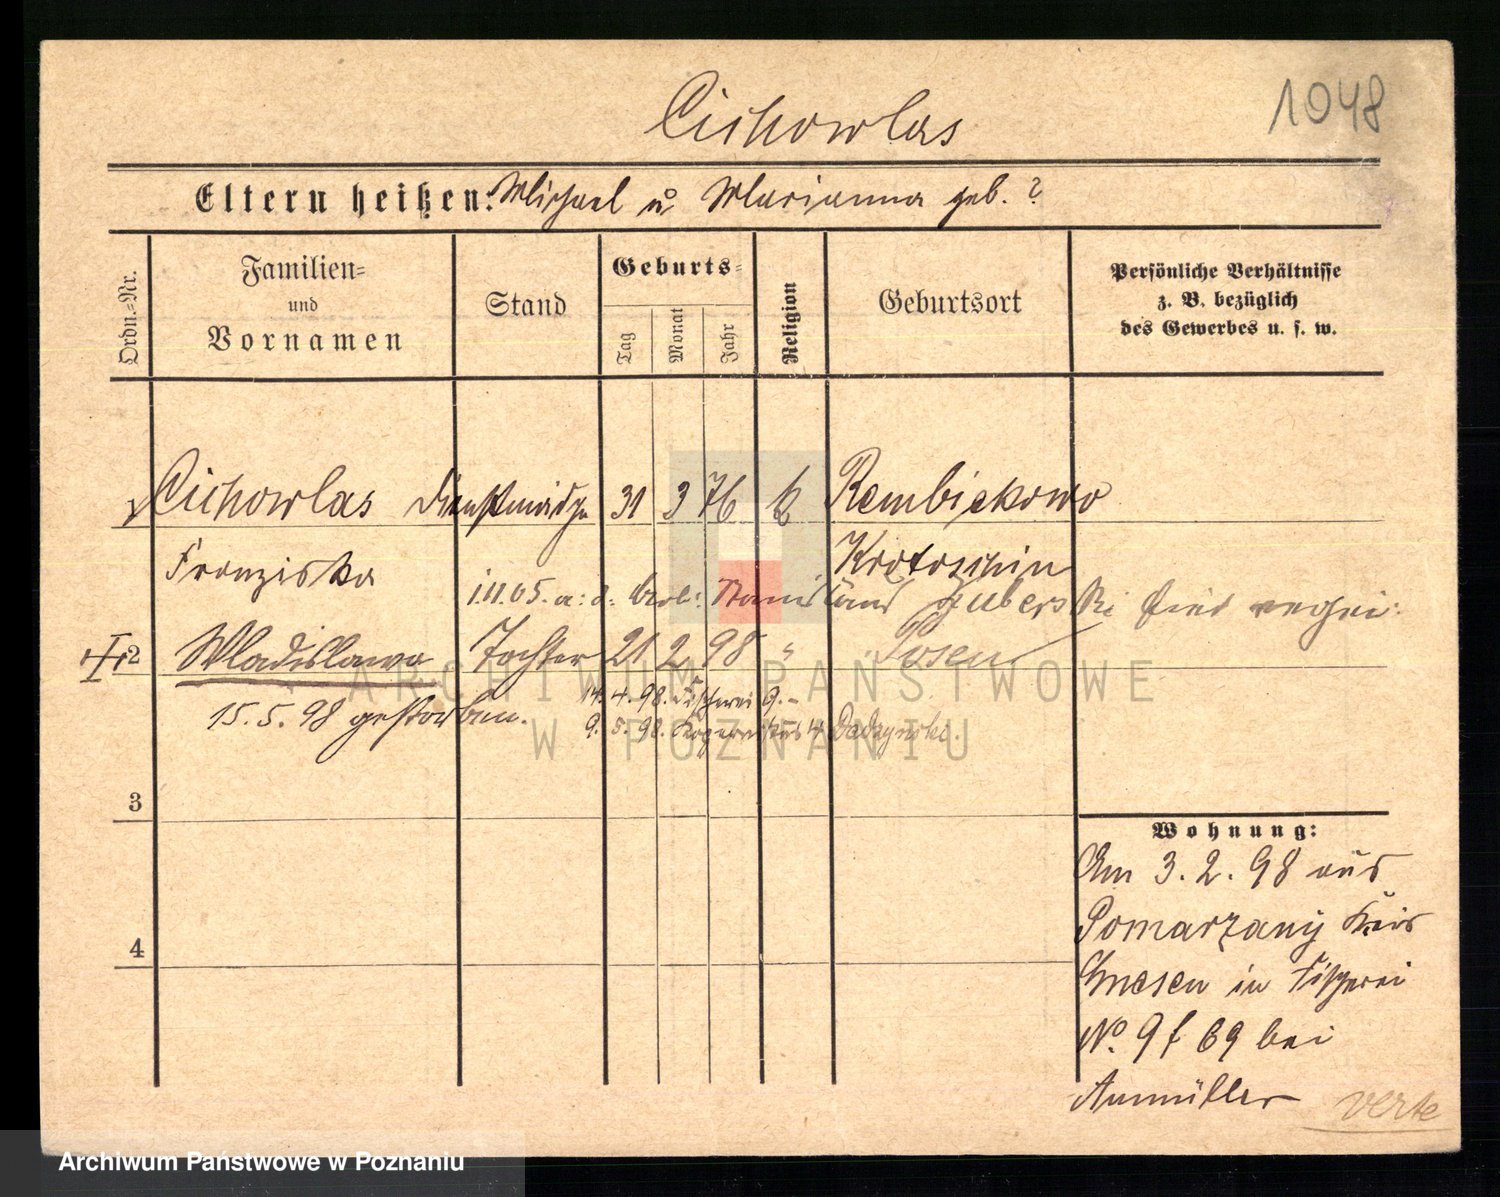 Cichowlas
1048
Eltern heißen: Michael u. Marianna geb. ?
Ordn.-Nr.
Familien-
und
Vornamen
Stand
Geburts-
Tag
Monat
Jahr
Religion
Geburtsort
Persönliche Verhältnisse
z. B. bezüglich
des Gewerbes u. s. w.
Cichowlas Dienstmädge 31 3 76 k Rembiekowo
Franziska Krotoschin
1.11.05. a: d: Stanislaus
2 Wladislawa Tochter 21 2 98 " Posen
15. 5. 98 gestorben.
14. 4. 98. Fischerei 9.-
9. 5. 98. 4
3
4
Wohnung:
Am 3. 2. 98 aus
Pomarzany Kreis
Gnesen in Fischerei
No. 9 69 bei
Aumüller
verte
ARCHIWUM PAŃSTWOWE
W POZNANIU
Archiwum Państwowe w Poznaniu